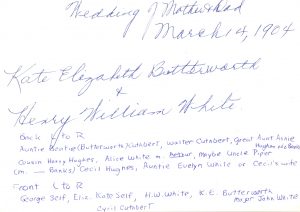 Wedding of Motherhead
March 14, 1904
Kate Elizabeth Butterworth
&
Henry William White.
Back L to R
Auntie Beatie (Butterworth) Cuthbert, Walter Cuthbert, Great Aunt Annie
Hughes née Banks
Cousin Harry Hughes, Alice White m. Maybe Uncle Piper
(m. — Banks) Cecil Hughes, Auntie Evelyn White or Cecil's wife
Front L to R
George Self, Eliz. Kate Self, H.W. White, K.E. Butterworth
Major John White
Cyril Cuthbert